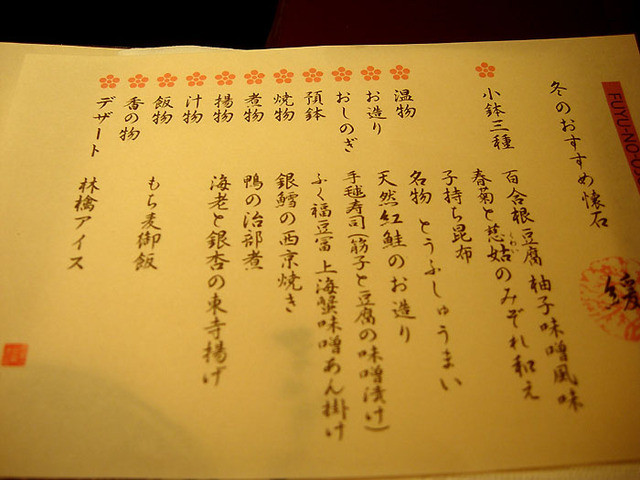 FUYU-NO-
冬のおすすめ懐石
小鉢三種 百合根豆腐 柚子味噌風味
春菊と慈姑のみぞれ和え
くわい
子持ち昆布
温物 名物 とうふしゅうまい
お造り 天然紅鮭のお造り
おしのぎ 手毬寿司(筋子と豆腐の味噌漬け)
預鉢 ふく福豆富 上海蟹味噌あん掛け
焼物 銀鱈の西京焼き
煮物 鴨の治部煮
揚物 海老と銀杏の東寺揚げ
汁物
飯物 もち麦御飯
香の物
デザート 林檎アイス